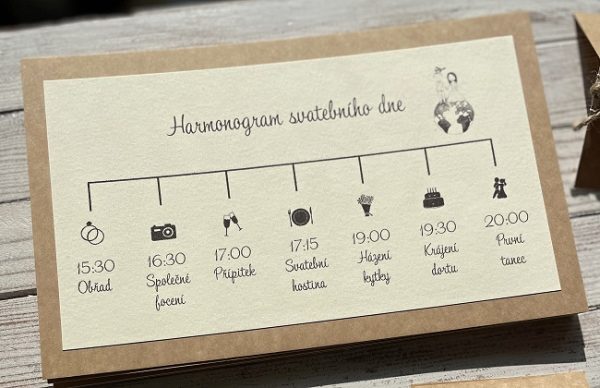 Harmonogram svatebního dne
15:30
Obřad
16:30
Společné
focení
17:00
Přípitek
17:15
Svatební
hostina
19:00
Házení
kytky
19:30
Krájení
dortu
20:00
První
tanec